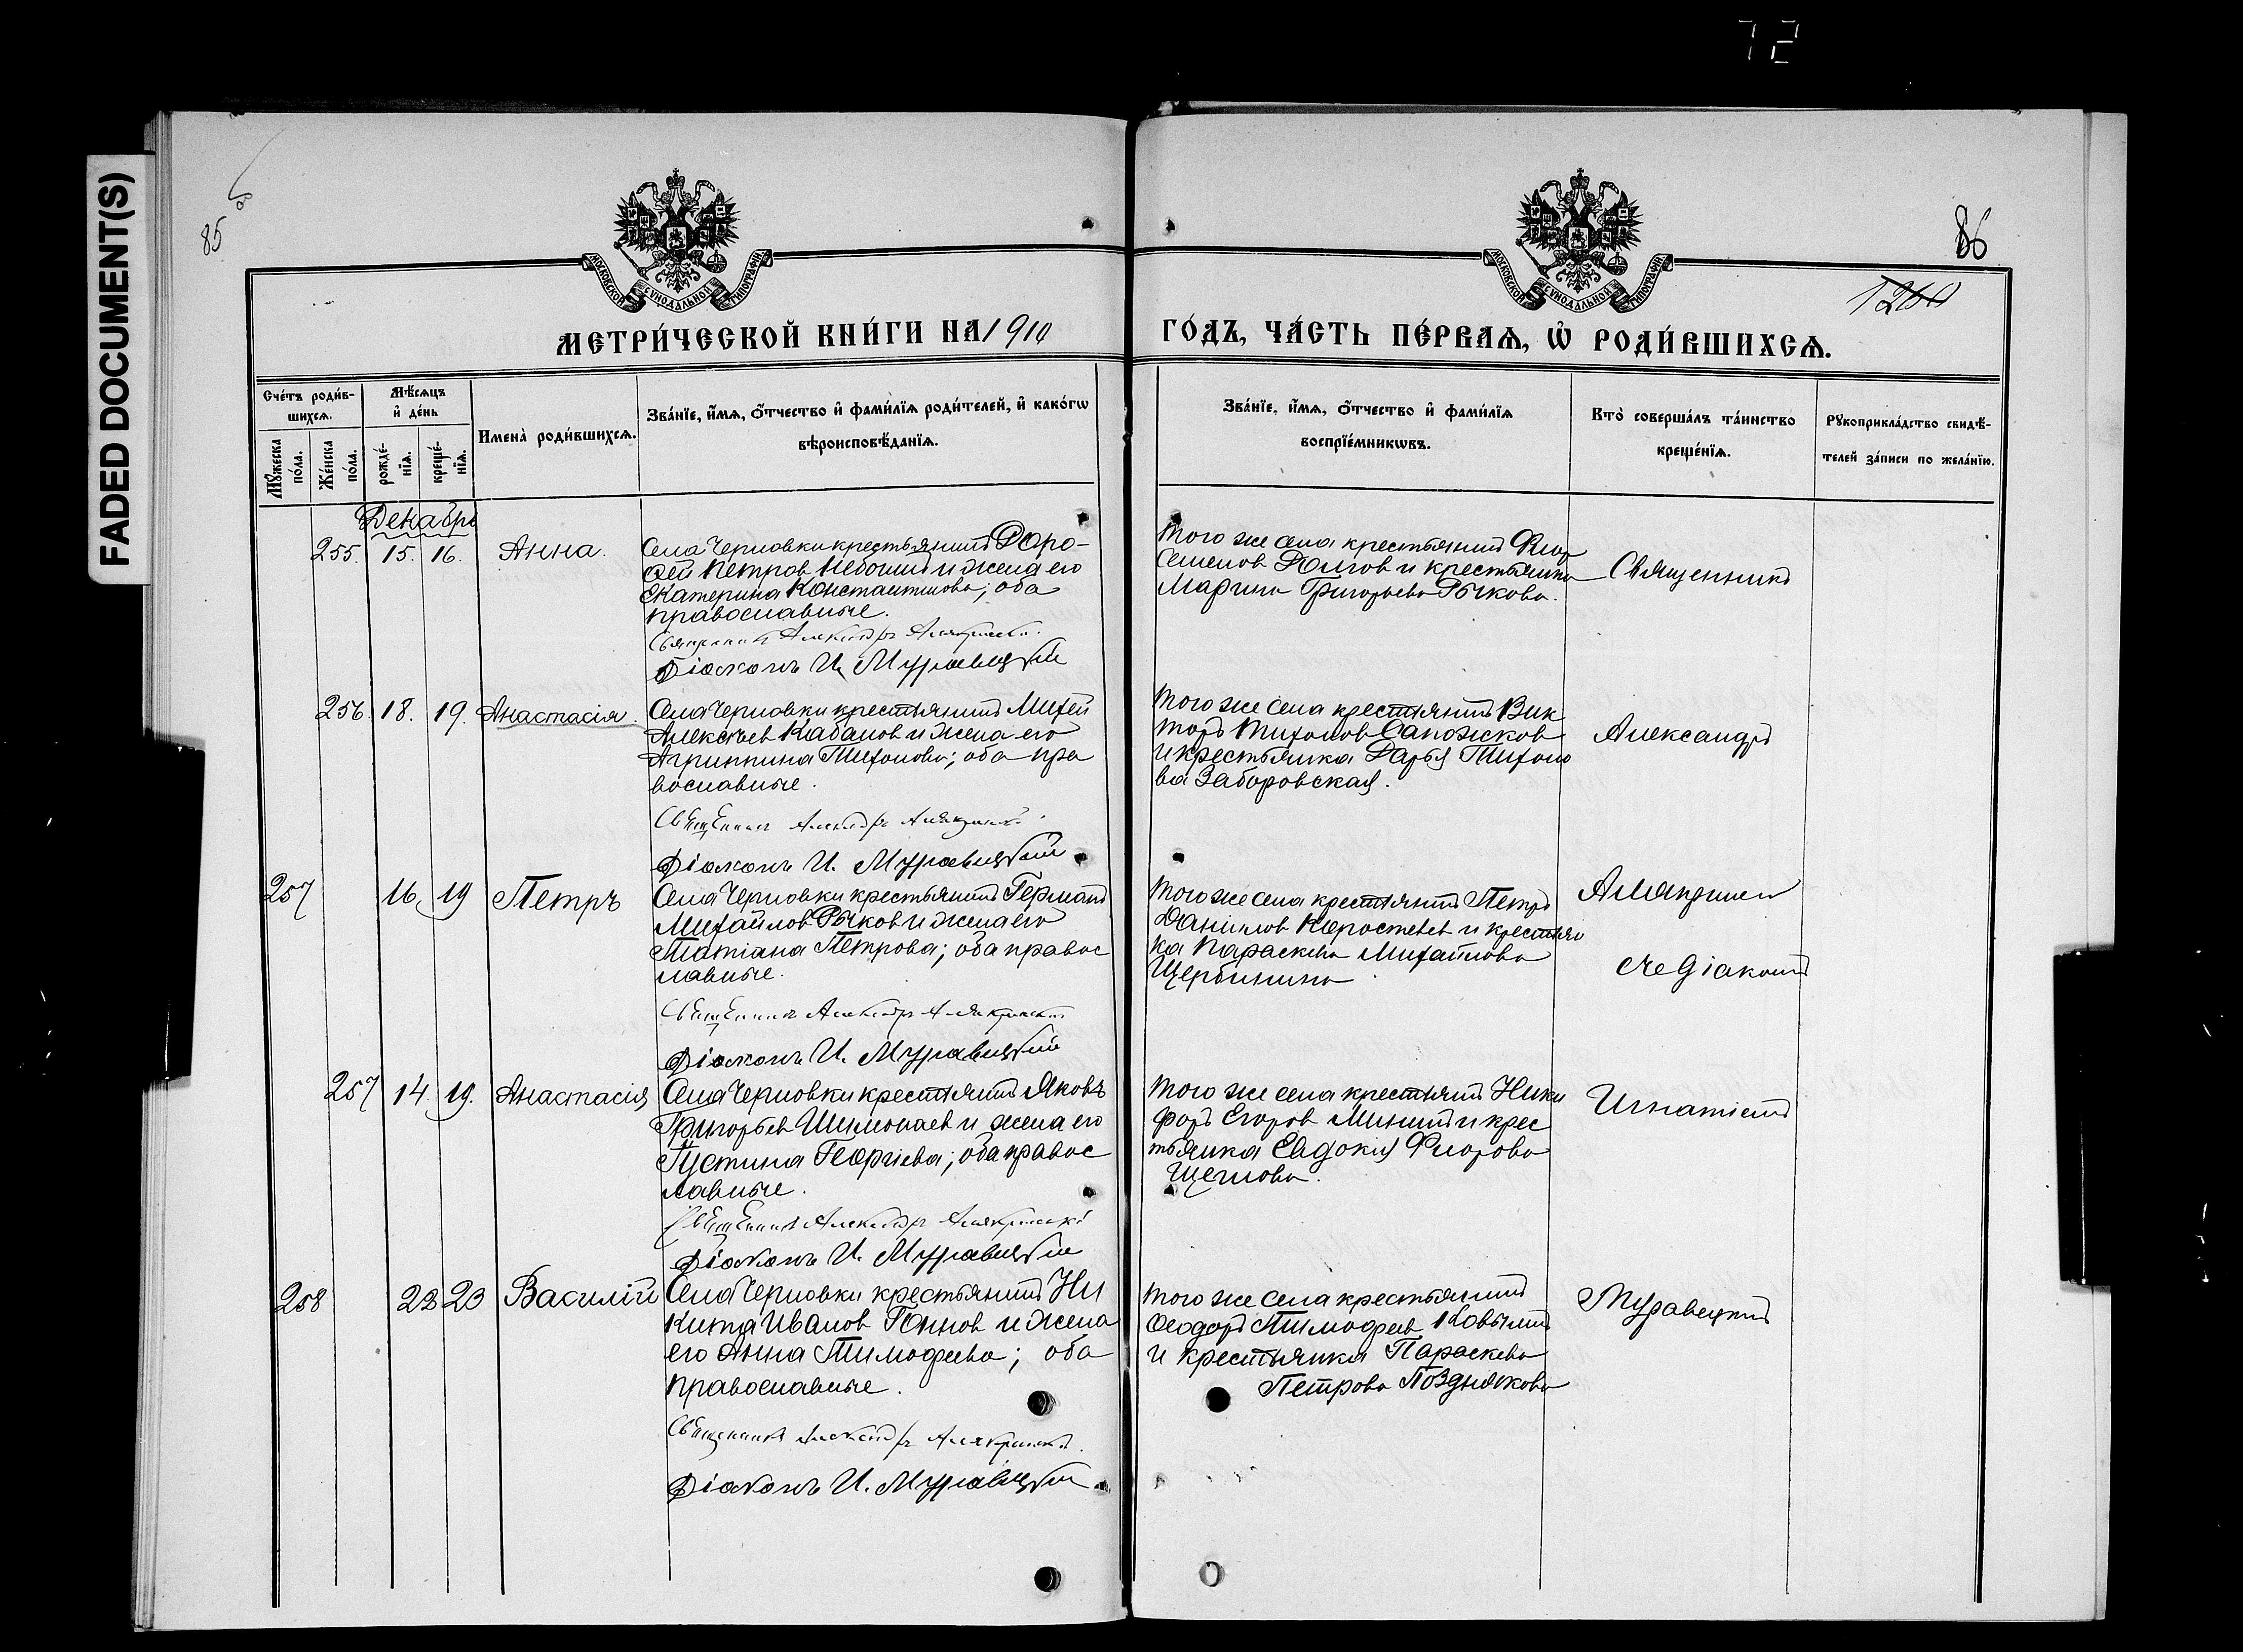 72
FADED DOCUMENT(S)
85
86
1260
МОСКОВСКОЙ СѴНОДАЛЬНОЙ ТИПОГРАФІИ
МОСКОВСКОЙ СѴНОДАЛЬНОЙ ТИПОГРАФІИ
МЕТРИ́ЧЕСКОЙ КНИ́ГИ НА 1910 ГО́ДЪ, ЧА́СТЬ ПЕ́РВАѦ, Ѡ҆ РОДИ́ВШИХСѦ.
Сче́тъ роди́в-
шихсѧ.
Мꙋ́жеска по́ла.
Же́нска по́ла.
Мѣ́сѧцъ
и҆ де́нь
рожде́-
нїѧ.
креще́-
нїѧ.
Имена̀ роди́вшихсѧ.
Зва́нїе, и҆́мѧ, ѻ҆́тчество и҆ фами́лїѧ роди́телей, и҆ како́гѡ
вѣроисповѣ́данїѧ.
Зва́нїе, и҆́мѧ, ѻ҆́тчество и҆ фами́лїѧ
воспрїе́мникѡвъ.
Кто̀ соверша́лъ та́инство
креще́нїѧ.
Рꙋкоприкла́дство свидѣ́-
телей за́писи по жела́нїю.
Декабрь
255. 15. 16. Анна.
Села Черновки крестьянинъ Доро-
фей Петров и жена его
Екатерина Константинова; оба
православные.
Священникъ Александръ Алякринскій.
Діаконъ И. Муравицкій
того же села крестьянинъ Флор
Семенов Долгов и крестьянка
Марина Григорьева Рычкова.
256. 18. 19. Анастасія.
Села Черновки крестьянинъ Михей
Алексѣев Кабанов и жена его
Агриппина Тихонова; оба пра
вославные.
Священникъ Александръ Алякринскій.
Діаконъ И. Муравицкій
того же села крестьянинъ Вик
торъ Тихонов Сапожков
и крестьянка Дарья Тихоно
ва Заборовская.
257 16. 19 Петръ
Села Черновки крестьянинъ Германъ
Михайлов Рычков и жена его
Татіана Петрова; оба правос
лавные.
Священникъ Александръ Алякринскій
Діаконъ И. Муравицкій
того же села крестьянинъ Петръ
Данилов Коростелев и крестьян
ка Параскева Михайлова
Щербинина
257 14. 19. Анастасія
Села Черновки крестьянинъ Яковъ
Григорьев и жена его
Густина Георгіева; оба правос
лавные.
Священникъ Александръ Алякринскій
Діаконъ И. Муравицкій
того же села крестьянинъ Ники
форъ Егоров Мининъ и крес
тьянка Евдокия Флорова
Щеглова.
258 22 23 Василій
Села Черновки крестьянинъ Ни
кита Иванов и жена
его Анна Тимофеева; оба
православные.
Священникъ Александръ Алякринскій.
Діаконъ И. Муравицкій
того же села крестьянинъ
Ѳеодоръ Тимофеев Ковылинъ
и крестьянка Параскева
Петрова Позднякова
Священникъ
Александръ
Алякринск
съ діакономъ
Игнатіемъ
Муравицкимъ